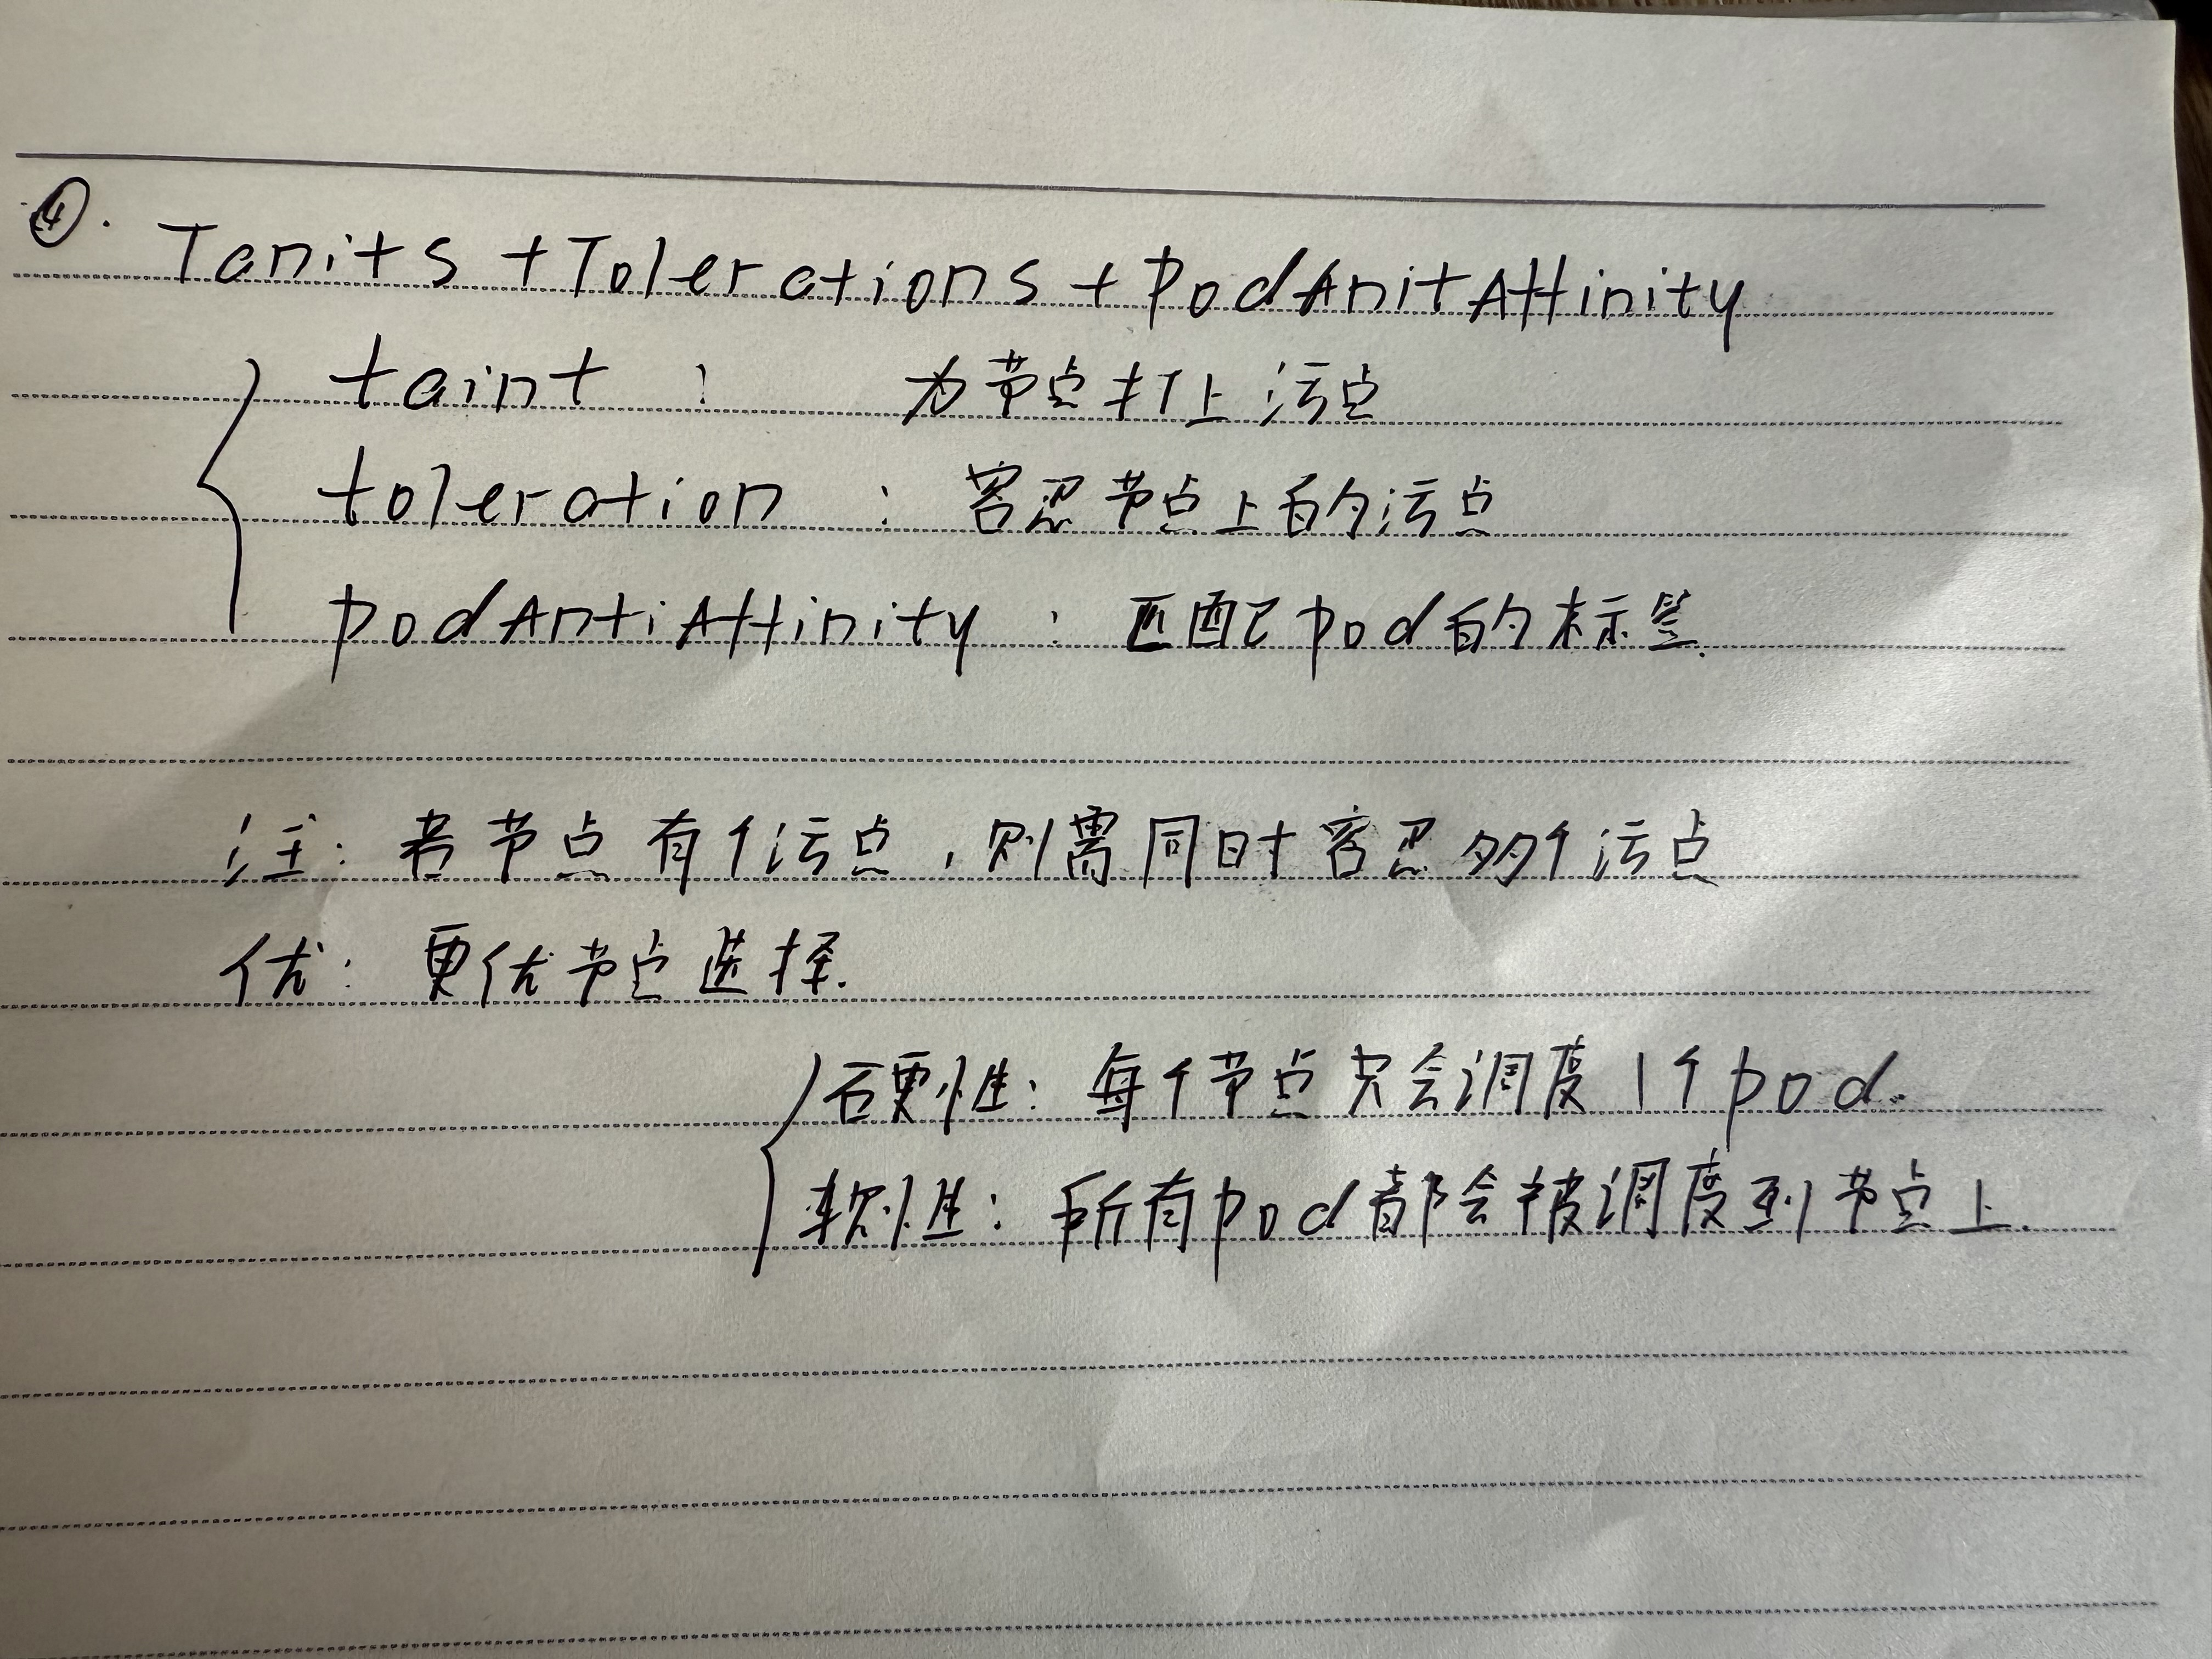 ④. Tanits + Tolerations + PodAnitAffinity
taint : 为节点打上污点
toleration : 容忍节点上的污点
podAntiAffinity : 匹配pod的标签.
注: 若节点有个污点,则需同时容忍多个污点
优: 更优节点选择.
硬性: 每个节点只会调度1个pod.
软性: 所有pod都会被调度到节点上.